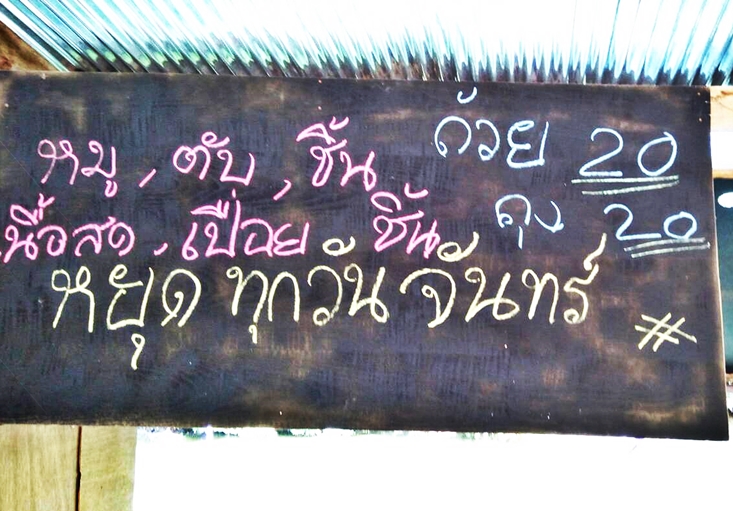 หมู, ตับ, ชิ้น ถ้วย 20
เนื้อสด, เปื่อย ชิ้น ถุง 20
หยุด ทุกวัน จันทร์ #